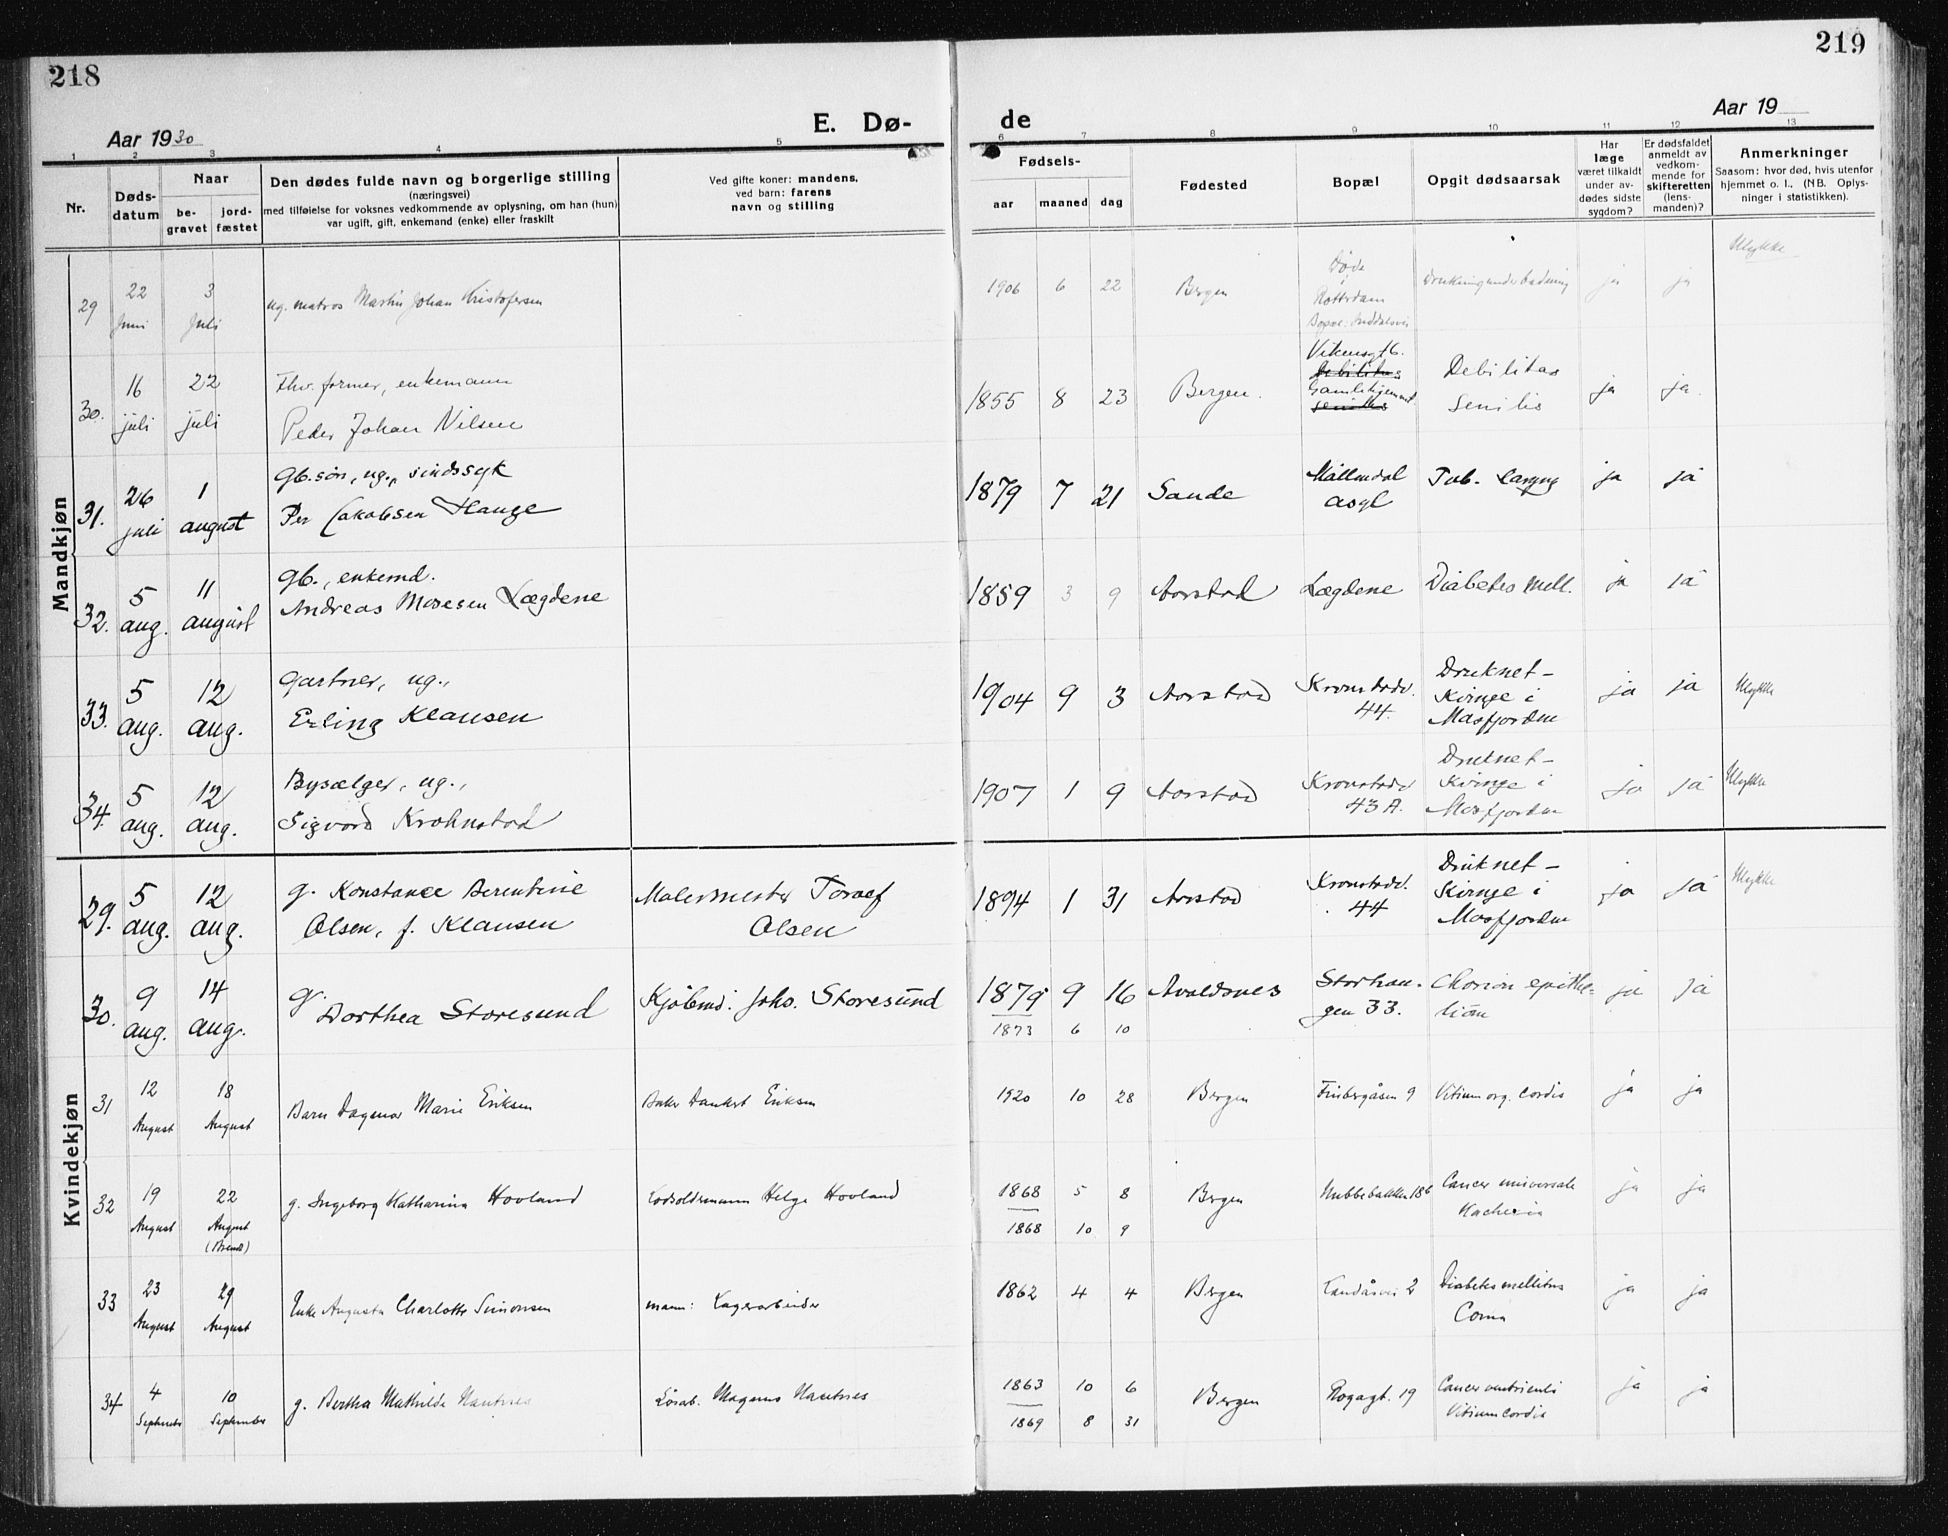 218
219
Aar 1930
E. Dø-
de
Aar 19
1 2 3 4 5 6 7 8 9 10 11 12 13
Nr.
Døds-
datum
Naar
be-
gravet
jord-
fæstet
Den dødes fulde navn og borgerlige stilling
(næringsvei)
med tilføielse for voksnes vedkommende av oplysning, om han (hun)
var ugift, gift, enkemand (enke) eller fraskilt
Ved gifte koner: mandens,
ved barn: farens
navn og stilling
Fødsels-
aar maaned dag
Fødested
Bopæl
Opgit dødsaarsak
Har
læge
været tilkaldt
under av-
dødes sidste
sygdom?
Er dødsfaldet
anmeldt av
vedkom-
mende for
skifteretten
(lens-
manden)?
Anmerkninger
Saasom: hvor død, hvis utenfor
hjemmet o. l., (NB. Oplys-
ninger i statistikken).
Mandkjøn
29
22
Juni
3
Juli
ug. matros Martin Johan Kristofersen
1906 6 22
Bergen
Døde
Rotterdam
Bopæl:
Drukning under badning
ja ja
Ulykke
30.
16
juli
22
juli
Fhv. former, enkemann
Peder Johan Nilsen
1855 8 23
Bergen.
Vikensgt 6.
Debilitas
Gamlehjemmet
Senilis
Debilitas
Senilis
ja ja.
31.
26
juli
1
august
Gb.søn, ug., sindssyk
Per Jakobsen Hauge
1879 7 21
Sande
Møllendal
asyl
Tub. Laryng
ja ja
32.
5
aug.
11
august
Gb., enkemd.
Andreas Mosesen Lægdene
1859 3 9
Aarstad
Lægdene
Diabetes mell.
ja ja
33.
5
aug.
12
aug.
Gartner, ug.,
Erling Klausen
1904 9 3
Aarstad
Kronstadv.
44.
Druknet-
Kvinge i
Masfjorden
ja ja
Ulykke
34.
5
aug.
12
aug.
Bysælger, ug.,
Sigvard Krohnstad
1907 1 9
Aarstad
Kronstadv
43 A.
Druknet-
Kvinge i
Masfjorden
ja ja
Ulykke
Kvindekjøn
29.
5
aug.
12
aug.
g. Konstance Berentine
Olsen, f. Klausen
Malermester Toralf
Olsen
1894 1 31
Aarstad
Kronstadv.
44
Druknet-
Kvinge i
Masfjorden
ja ja
Ulykke
30.
9
aug.
14
aug.
g.
Dorthea Storesund
Kjøbmd. Johs. Storesund
1879 9 16
1873 6 10
Avaldsnes
Storhau-
gen 33.
Chorion epithe-
liom
ja ja
31
12
August
18
August
Barn Dagmar Marie Eriksen
Baker Dankert Eriksen
1920 10 28
Bergen
Finbergåsen 9
Vitium org. cordis
ja ja
32
19
August
22
August
(Brendt)
g. Ingeborg Katharina Hovland
Lodsoldermann Helge Hovland
1868 5 8
1868 10 9
Bergen
Nubbebakken 18b
Cancer universale
Kachexia
ja ja
33
23
August
29
August
Enke Augusta Charlotte Simonsen
mann: Lagerarbeider
1862 4 4
Bergen
Landåsvei 2
Diabetes mellitus
Coma
ja ja
34
4
September
10
September
g. Bertha Mathilde Hauknes
Løsarb. Magnus Hauknes
1863 10 6
1869 8 31
Bergen
Rogagt. 19
Cancer ventriculi
Vitium cordis
ja ja